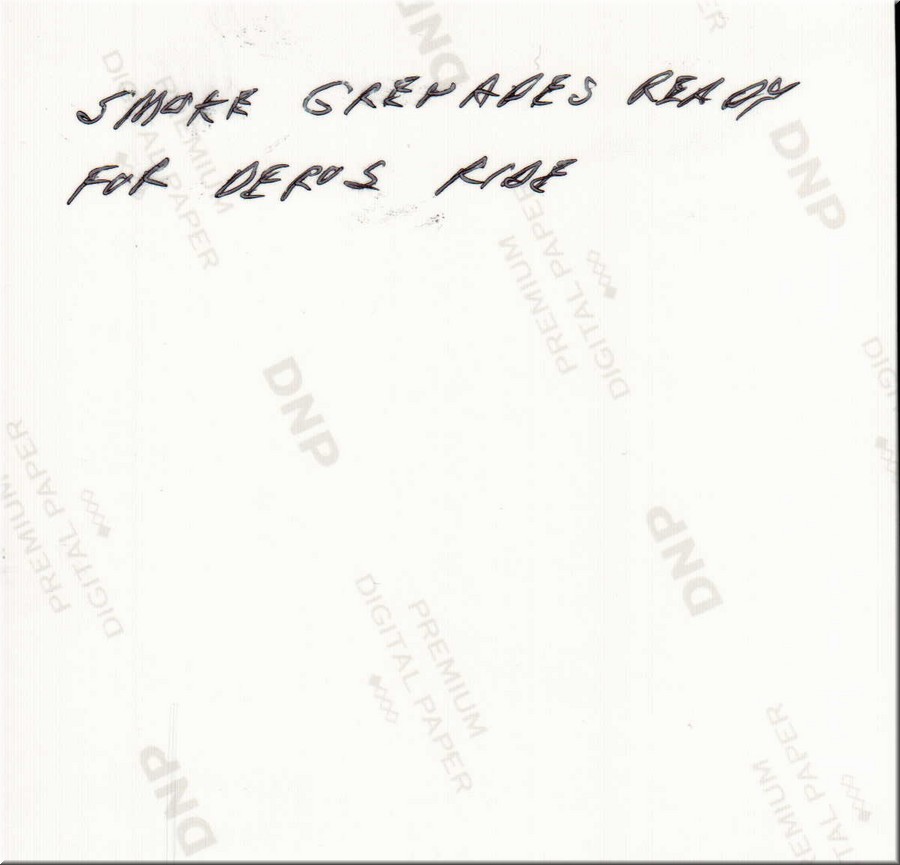 SMOKE GRENADES READY
FOR DEROS RIDE
DNP
PREMIUM
DIGITAL PAPER
DNP
PREMIUM
DIGITAL PAPER
DNP
PREMIUM
DIGITAL PAPER
DNP
PREMIUM
DIGITAL PAPER
DNP
PREMIUM
DIGITAL PAPER